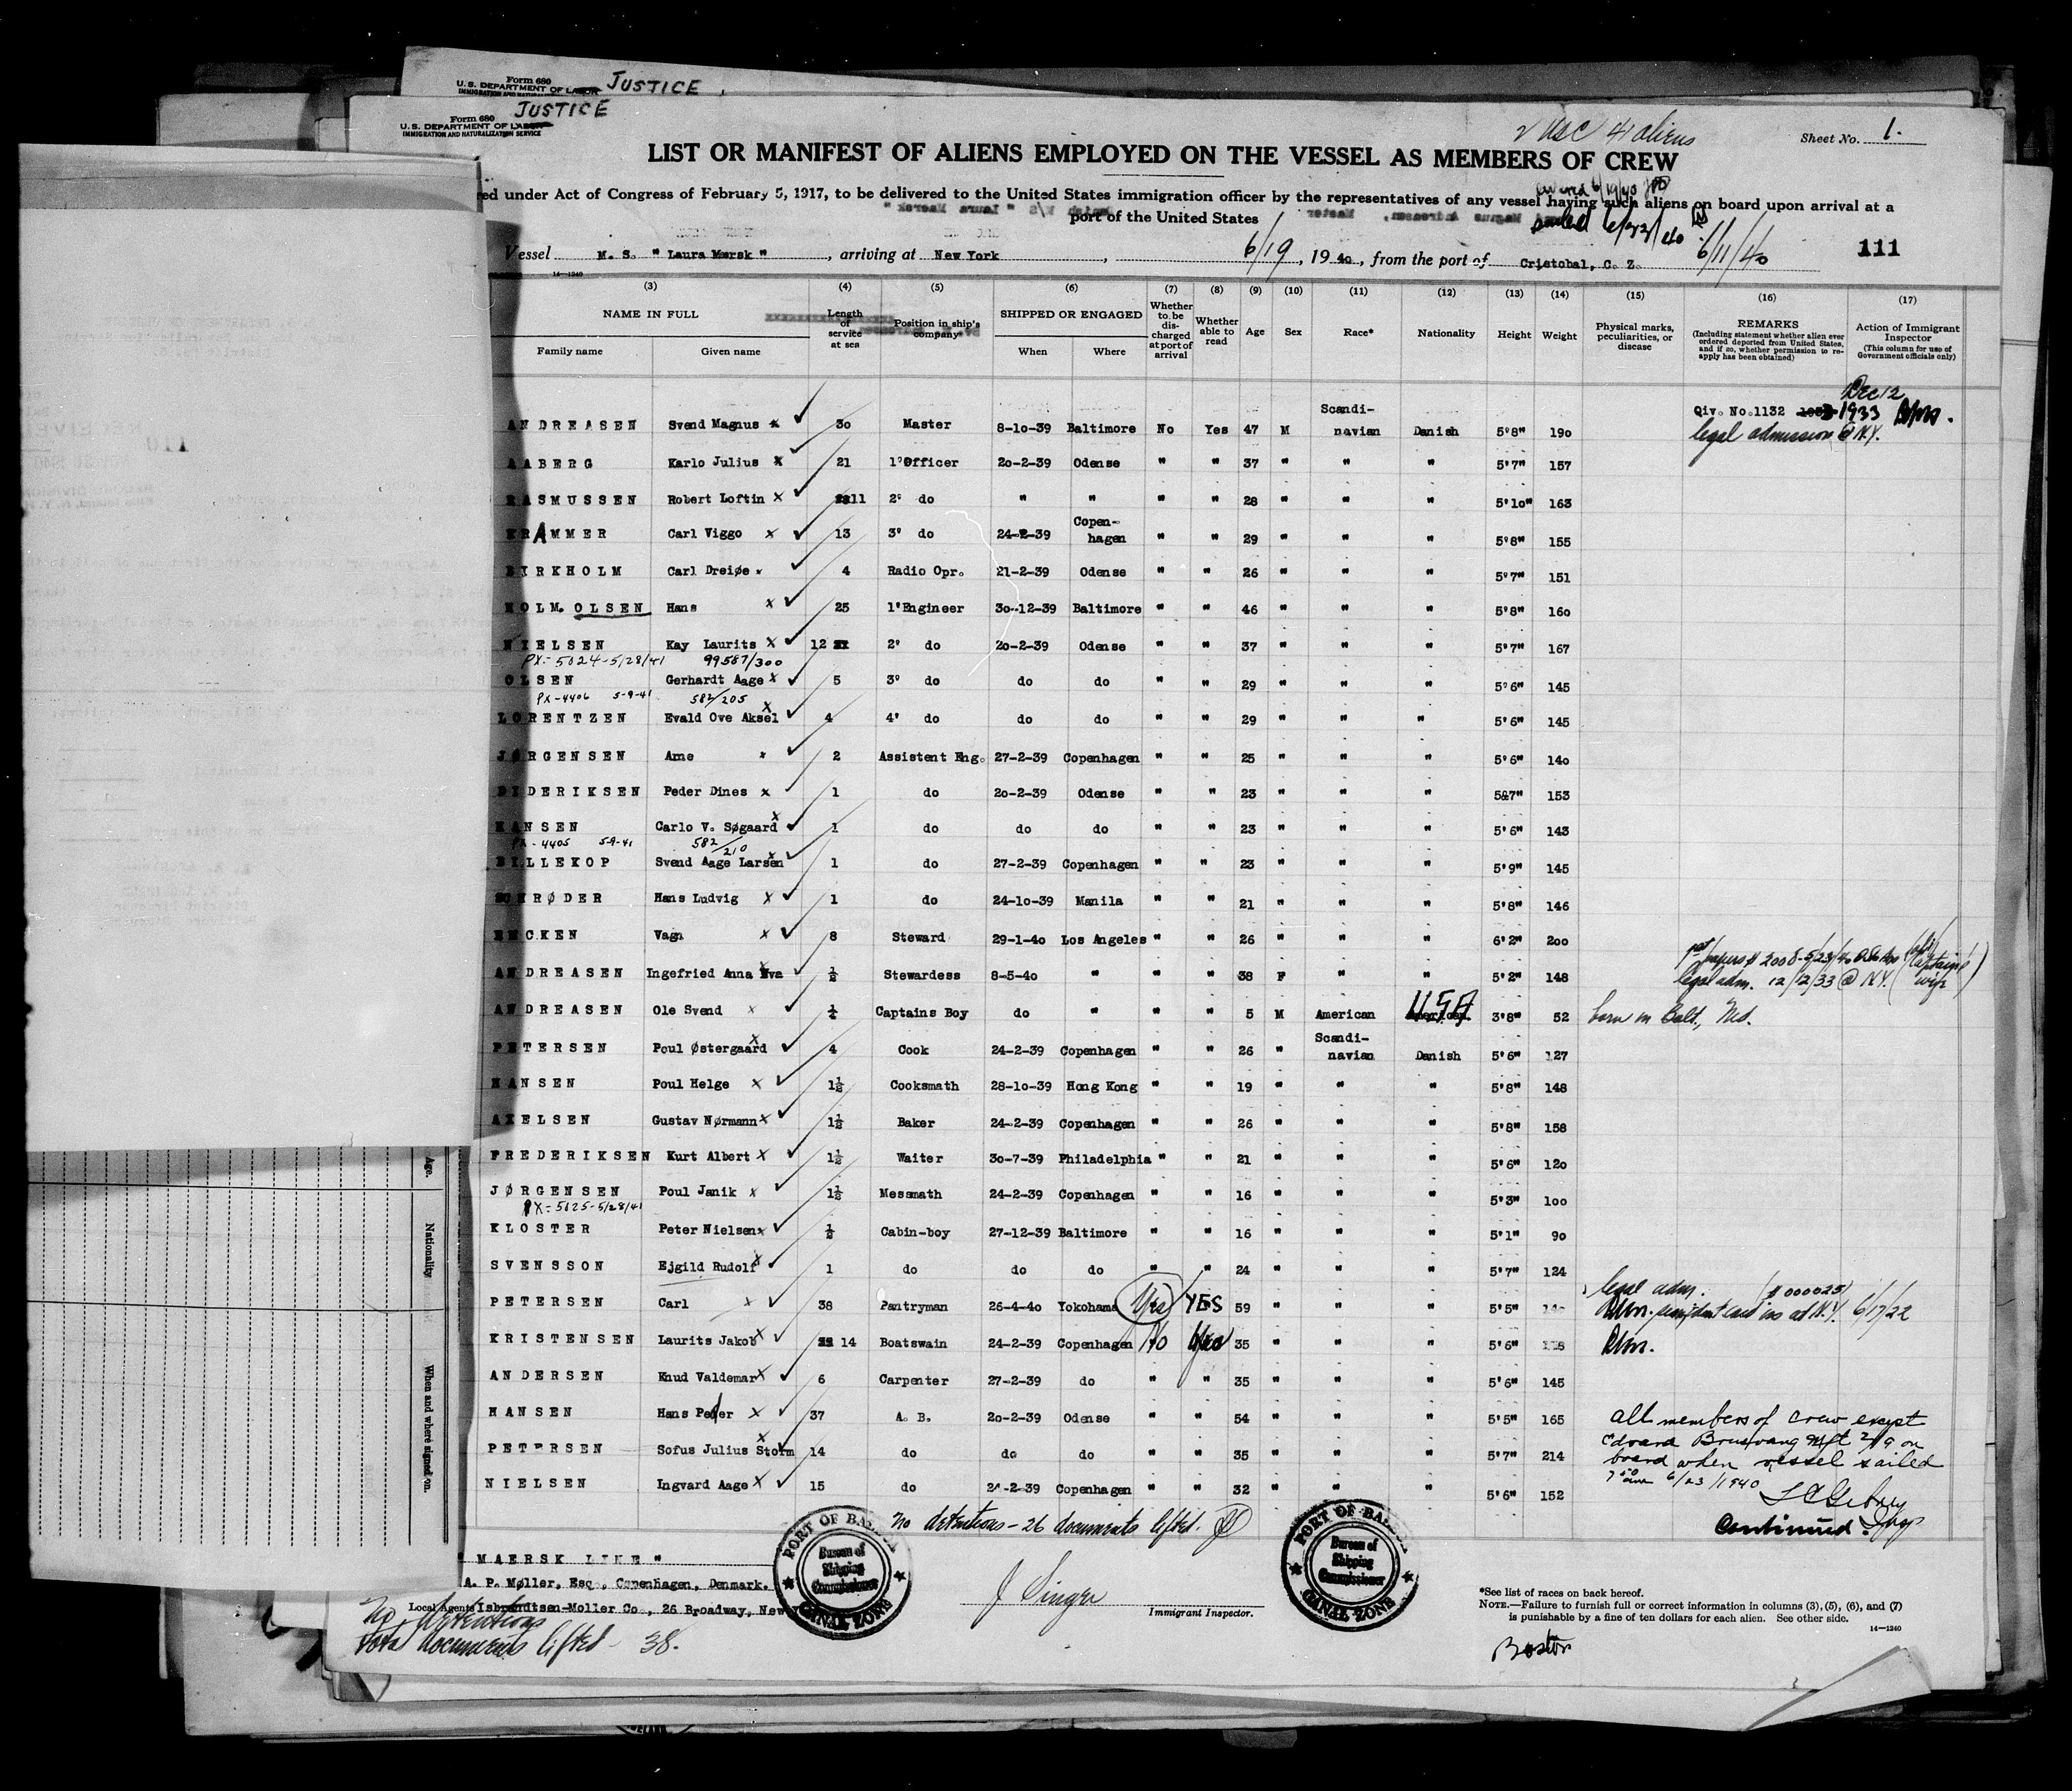 Form 680
U. S. DEPARTMENT OF LABOR JUSTICE
Form 680 JUSTICE
U. S. DEPARTMENT OF LABOR
IMMIGRATION AND NATURALIZATION SERVICE
2 USC 41 aliens
Sheet No. 1.
LIST OR MANIFEST OF ALIENS EMPLOYED ON THE VESSEL AS MEMBERS OF CREW
red under Act of Congress of February 5, 1917, to be delivered to the United States immigration officer by the representatives of any vessel having such aliens on board upon arrival at a
port of the United States
sailed 6/23/40
Vessel M. S. " Laura Mærsk ", arriving at New York, 6/19, 1940, from the port of Cristobal, C. Z. 6/11/40 111
14—1240
(3) (4) (5) (6) (7) (8) (9) (10) (11) (12) (13) (14) (15) (16) (17)
NAME IN FULL Family name Given name
Length of service at sea
Position in ship's company
SHIPPED OR ENGAGED When Where
Whether to be discharged at port of arrival
Whether able to read
Age Sex Race* Nationality Height Weight
Physical marks, peculiarities, or disease
REMARKS (Including statement whether alien ever ordered deported from United States, and if so, whether permission to reapply has been obtained)
Action of Immigrant Inspector (This column for use of Government officials only)
Dec 12
ANDREASEN Svend Magnus x 30 Master 8-10-39 Baltimore No Yes 47 M Scandinavian Danish 5'8" 190 Qiv. No.1132 1933
legal admission @ N.Y.
AABERG Karlo Julius x 21 1'Officer 20-2-39 Odense " " 37 " " " 5'7" 157
RASMUSSEN Robert Loftin x 11 2' do " " " " 28 " " " 5'10" 163
KRAMMER Carl Viggo x 13 3' do 24-2-39 Copenhagen " " 29 " " " 5'8" 155
BIRKHOLM Carl Dreiøe x 4 Radio Opr. 21-2-39 Odense " " 26 " " " 5'7" 151
HOLM. OLSEN Hans x 25 1'Engineer 30-12-39 Baltimore " " 46 " " " 5'8" 160
NIELSEN Kay Laurits x 12 2' do 20-2-39 Odense " " 37 " " " 5'7" 167
PX-5024-5/28/41 99587/300
OLSEN Gerhardt Aage x 5 3' do do do " " 29 " " " 5'6" 145
PX-4406 5-9-41 582/205
LORENTZEN Evald Ove Aksel x 4 4' do do do " " 29 " " " 5'6" 145
JØRGENSEN Arne x 2 Assistent Eng. 27-2-39 Copenhagen " " 25 " " " 5'6" 140
DIDERIKSEN Peder Dines x 1 do 20-2-39 Odense " " 23 " " " 5&7" 153
HANSEN Carlo V. Søgaard x 1 do do do " " 23 " " " 5'6" 143
PX-4405 5-9-41 582/210
BILLEKOP Svend Aage Larsen x 1 do 27-2-39 Copenhagen " " 23 " " " 5'9" 145
SCHRØDER Hans Ludvig x 1 do 24-10-39 Manila " " 21 " " " 5'8" 146
EMCKEN Vagn x 8 Steward 29-1-40 Los Angeles " " 26 " " " 6'2" 200
ANDREASEN Ingefried Anna Eva x ½ Stewardess 8-5-40 " " " 38 F " " 5'2" 148 legal adm. 12/12/33 @ N.Y. (Captain's wife)
ANDREASEN Ole Svend x ¼ Captains Boy do " " " 5 M American USA 3'8" 52 born in Balt., Md.
PETERSEN Poul Østergaard x 4 Cook 24-2-39 Copenhagen " " 26 " Scandinavian Danish 5'6" 127
HANSEN Poul Helge x 1½ Cooksmath 28-10-39 Hong Kong " " 19 " " " 5'8" 148
AXELSEN Gustav Nørmann x 1½ Baker 24-2-39 Copenhagen " " 26 " " " 5'8" 158
FREDERIKSEN Kurt Albert x 1½ Waiter 30-7-39 Philadelphia " " 21 " " " 5'6" 120
JØRGENSEN Poul Janik x 1½ Messmath 24-2-39 Copenhagen " " 16 " " " 5'3" 100
PX-5025-5/28/41
KLOSTER Peter Nielsen x ½ Cabin-boy 27-12-39 Baltimore " " 16 " " " 5'1" 90
SVENSSON Ejgild Rudolf x 1 do do do " " 24 " " " 5'7" 124
PETERSEN Carl x 38 Pantryman 26-4-40 Yokohama Yes YES 59 " " " 5'5" legal adm. (#000025) at N.Y. 6/17/22
KRISTENSEN Laurits Jakob x 14 Boatswain 24-2-39 Copenhagen No Yes 35 " " " 5'6"
ANDERSEN Knud Valdemar x 6 Carpenter 27-2-39 do " " 35 " " " 5'6" 145
HANSEN Hans Peder x 37 A. B. 20-2-39 Odense " " 54 " " " 5'5" 165
PETERSEN Sofus Julius Storm x 14 do do do " " 35 " " " 5'7" 214
NIELSEN Ingvard Aage x 15 do 2-2-39 Copenhagen " " 32 " " " 5'6" 152
All members of crew except
Edvard Brusvang Mft 2/9 on
board when vessel sailed
7 50 am 6/23/1940
Continued.
No detentions - 26 documents lifted.
" MAERSK LINE "
A. P. Møller, Esq., Copenhagen, Denmark.
Local Agents Isbrandtsen-Moller Co., 26 Broadway, New
No detentions
Tota documents lifted - 38.
PORT OF BALBOA CANAL ZONE
Bureau of Shipping Commissioner
J Singer
Immigrant Inspector.
PORT OF BALBOA CANAL ZONE
Bureau of Shipping Commissioner
*See list of races on back hereof.
NOTE.—Failure to furnish full or correct information in columns (3), (5), (6), and (7)
is punishable by a fine of ten dollars for each alien. See other side.
14—1240
Boston
Age.
Nationality
When and where signed on.